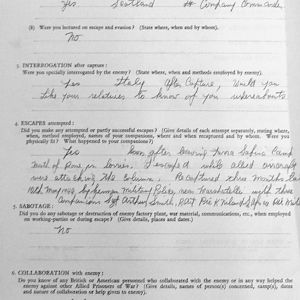 Yes Scotland Company Commander
(b) Were you lectured on escape and evasion? (State where, when and by whom).
No
3. INTERROGATION after capture:
Were you specially interrogated by the enemy? (State where, when and methods employed by enemy).
Yes Italy After Capture, Would you
like your relatives to know of your whereabouts
4. ESCAPES attempted:
Did you make any attempted or partly successful escapes? (Give details of each attempt separately, stating where,
when, method employed, names of your companions, where and when recaptured and by whom. Were you
physically fit? What happened to your companions?)
Yes soon after leaving Camp
north of Rome in lorries. I escaped while allied aircraft
were attacking the column. Recaptured three months later
May 1944 by German Military Police, near with three
companions Sgt Arthur Smith, Pte
5. SABOTAGE:
Did you do any sabotage or destruction of enemy factory plant, war material, communications, etc., when employed
on working-parties or during escape? (Give details, places and dates.)
No
6. COLLABORATION with enemy:
Do you know of any British or American personnel who collaborated with the enemy or in any way helped the
enemy against other Allied Prisoners of War? (Give details, names of person(s) concerned, camp(s), dates
and nature of collaboration or help given to enemy).